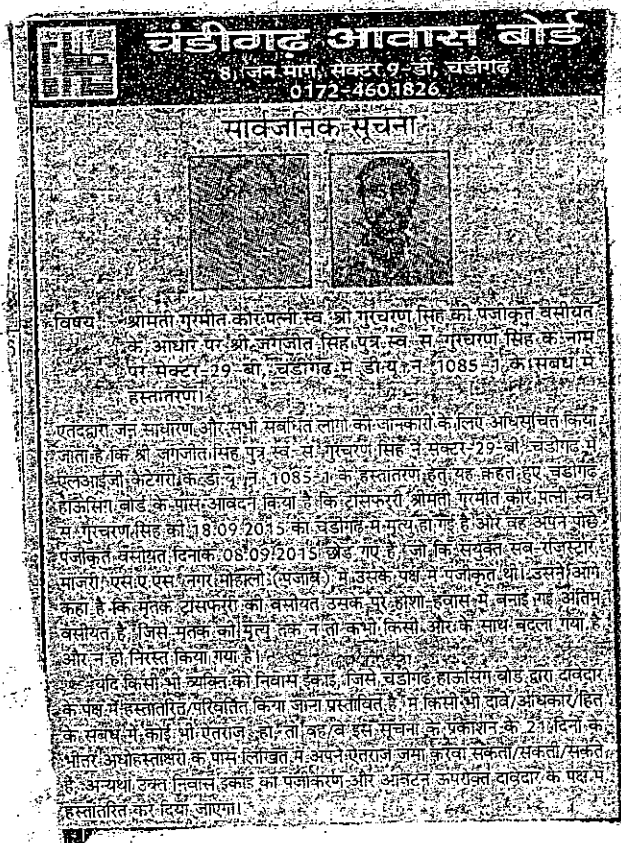 चंडीगढ़ आवास बोर्ड
8, जन मार्ग, सेक्टर 9-डी, चंडीगढ़
0172-4601826
सार्वजनिक सूचना
विषय : श्रीमती गुरमीत कौर पत्नी स्व. श्री गुरचरण सिंह की पंजीकृत वसीयत
के आधार पर श्री जगजोत सिंह पुत्र स्व. स. गुरचरण सिंह के नाम
पर सेक्टर-29-बी, चंडीगढ़ में डी.यू. नं. 1085-1 के संबंध में
हस्तांतरण।
एतद्द्वारा जन साधारण और सभी संबंधित लोगों की जानकारी के लिए अधिसूचित किया
जाता है कि श्री जगजोत सिंह पुत्र स्व. स. गुरचरण सिंह ने सेक्टर-29-बी, चंडीगढ़ में
एलआईजी केटेगरी के डी.यू. नं. 1085-1 के हस्तांतरण हेतु यह कहते हुए चंडीगढ़
हाऊसिंग बोर्ड के पास आवेदन किया है कि ट्रांसफररी श्रीमती गुरमीत कौर पत्नी स्व.
स. गुरचरण सिंह की 18.09.2015 को चंडीगढ़ में मृत्यु हो गई है और वह अपने पीछे
पंजीकृत वसीयत दिनांक 08.09.2015 छोड़ गए हैं जो कि संयुक्त सब-रजिस्ट्रार,
माजरी, एस.ए.एस. नगर मोहाली (पंजाब) में उसके पक्ष में पंजीकृत थी। उसने आगे
कहा है कि मृतक ट्रांसफररी की वसीयत उसके पूरे होशो-हवास में बनाई गई अंतिम
वसीयत है, जिसे मृतक की मृत्यु तक न तो कभी किसी और के साथ बदला गया है
और न ही निरस्त किया गया है।
यदि किसी भी व्यक्ति को निवास इकाई, जिसे चंडीगढ़ हाऊसिंग बोर्ड द्वारा दावेदार
के पक्ष में हस्तांतरित/परिवर्तित किया जाना प्रस्तावित है, में किसी भी दावे/अधिकार/हित
के संबंध में कोई भी ऐतराज हो, तो वह/वे इस सूचना के प्रकाशन के 21 दिनों के
भीतर अधोहस्ताक्षरी के पास लिखित में अपने ऐतराज जमा करवा सकता/सकती/सकते
है, अन्यथा उक्त निवास इकाई का पंजीकरण और आबंटन उपरोक्त दावेदार के पक्ष में
हस्तांतरित कर दिया जाएगा।